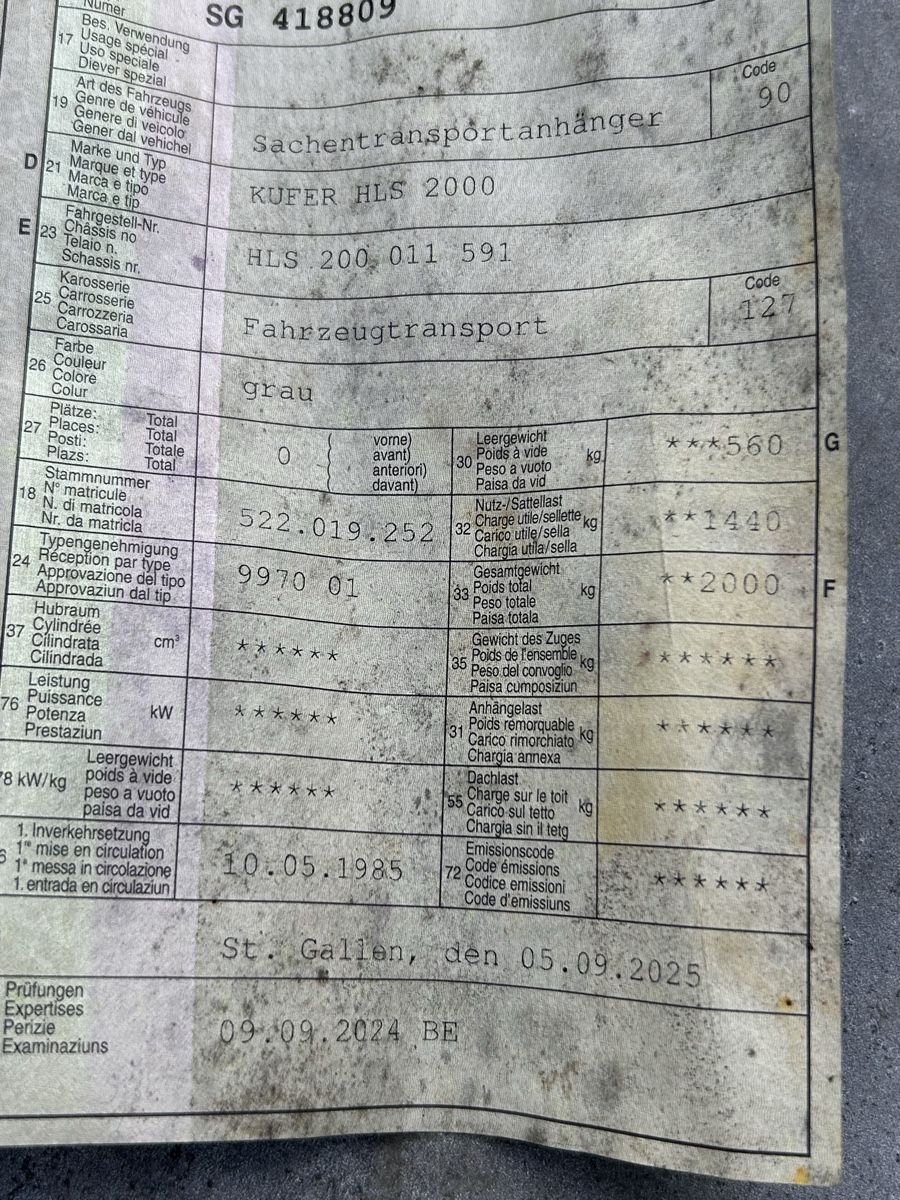 Numer
SG 418809
17
Bes. Verwendung
Usage spécial
Uso speciale
Diever spezial
19
Art des Fahrzeugs
Genre de véhicule
Genere di veicolo
Gener dal vehichel
Sachentransportanhänger
Code
90
D
21
Marke und Typ
Marque et type
Marca e tipo
Marca e tip
KUFER HLS 2000
E
23
Fahrgestell-Nr.
Châssis no
Telaio n.
Schassis nr.
HLS 200 011 591
25
Karosserie
Carrosserie
Carrozzeria
Carossaria
Fahrzeugtransport
Code
127
26
Farbe
Couleur
Colore
Colur
grau
27
Plätze: Total
Places: Total
Posti: Totale
Plazs: Total
0
vorne)
avant)
anteriori)
davant)
30
Leergewicht
Poids à vide
Peso a vuoto
Paisa da vid
kg
***560
G
18
Stammnummer
N° matricule
N. di matricola
Nr. da matricla
522.019.252
32
Nutz-/Sattellast
Charge utile/sellette
Carico utile/sella
Chargia utila/sella
kg
**1440
24
Typengenehmigung
Réception par type
Approvazione del tipo
Approvaziun dal tip
9970 01
33
Gesamtgewicht
Poids total
Peso totale
Paisa totala
kg
**2000
F
37
Hubraum
Cylindrée
Cilindrata
Cilindrada
cm³
******
35
Gewicht des Zuges
Poids de l'ensemble
Peso del convoglio
Paisa cumposiziun
kg
******
76
Leistung
Puissance
Potenza
Prestaziun
kW
******
31
Anhängelast
Poids remorquable
Carico rimorchiato
Chargia annexa
kg
******
78 kW/kg
Leergewicht
poids à vide
peso a vuoto
paisa da vid
******
55
Dachlast
Charge sur le toit
Carico sul tetto
Chargia sin il tetg
kg
******
1. Inverkehrsetzung
1re mise en circulation
1a messa in circolazione
1. entrada en circulaziun
10.05.1985
72
Emissionscode
Code émissions
Codice emissioni
Code d'emissiuns
******
St. Gallen, den 05.09.2025
Prüfungen
Expertises
Perizie
Examinaziuns
09.09.2024 BE